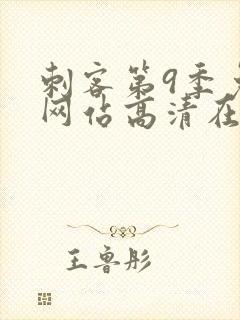 刺客第9季
网佔高清在
王鲁彤